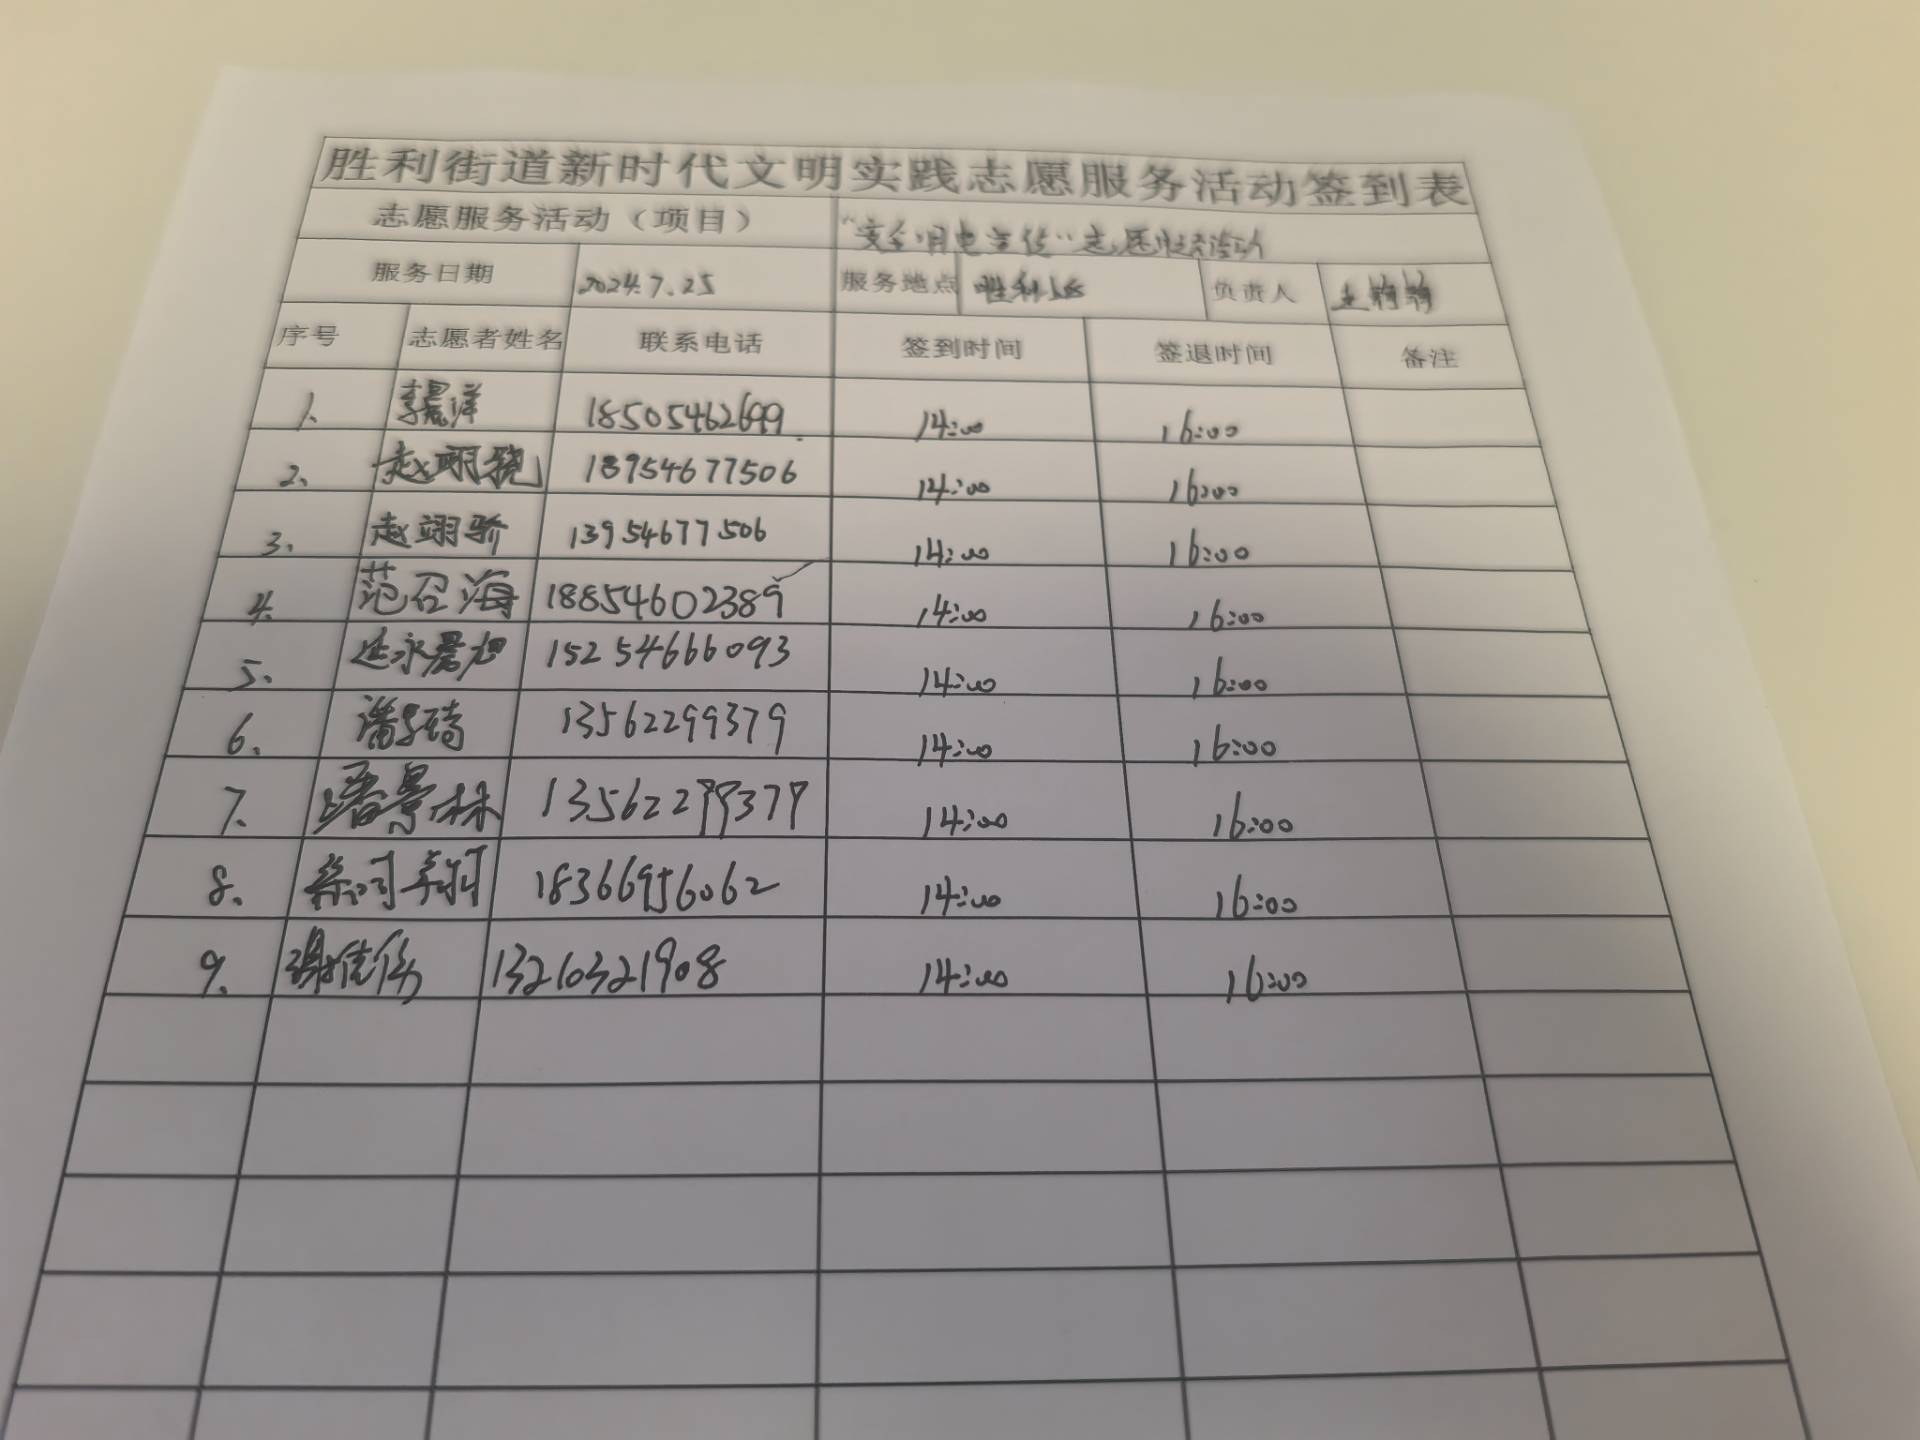 胜利街道新时代文明实践志愿服务活动签到表
志愿服务活动（项目） "安全用电宣传"志愿服务活动
服务日期 2024.7.25 服务地点 胜利 负责人
序号 志愿者姓名 联系电话 签到时间 签退时间 备注
1. 李晨洋 18505462699 14:00 16:00
2. 赵翊骁 18954677506 14:00 16:00
3. 赵翊骄 13954677506 14:00 16:00
4. 范召海 18854602389 14:00 16:00
5. 15254666093 14:00 16:00
6. 潘子琦 13562299379 14:00 16:00
7. 潘景林 13562299379 14:00 16:00
8. 18366956062 14:00 16:00
9. 谢佳 13210321908 14:00 16:00